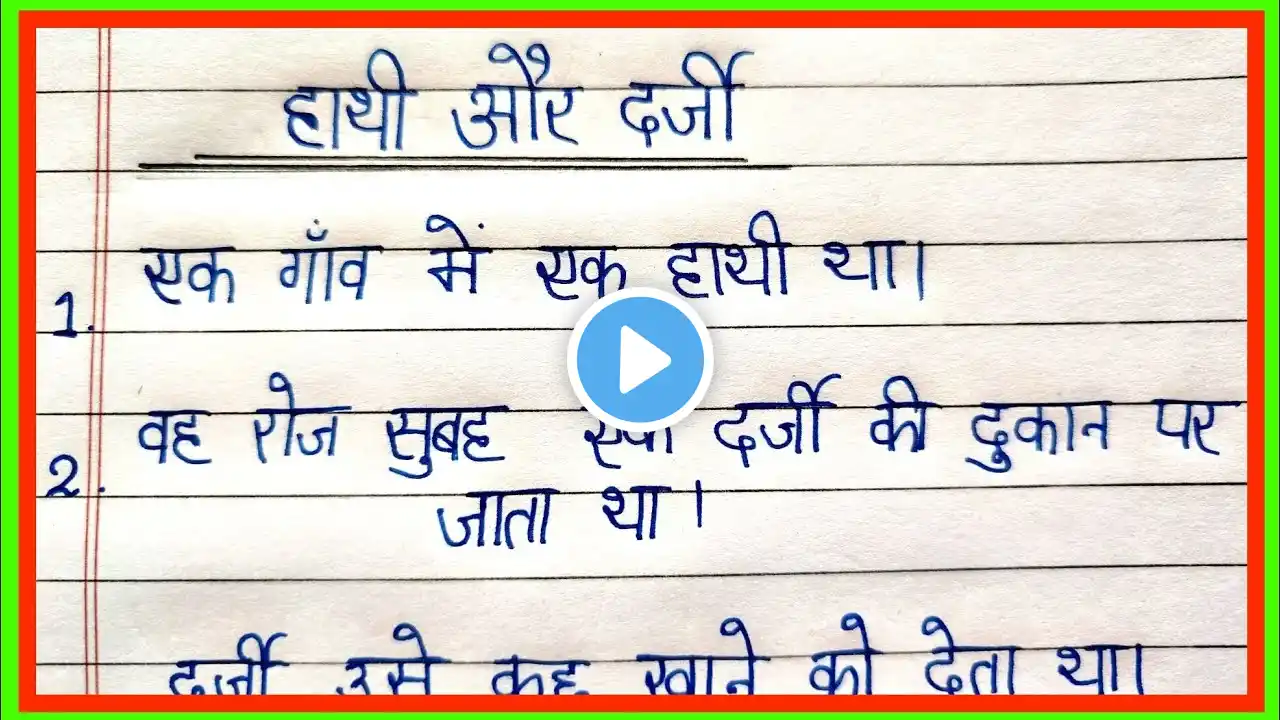 हाथी और दर्जी
1. एक गाँव में एक हाथी था।
2. वह रोज सुबह एक दर्जी की दुकान पर
जाता था।
दर्जी उसे कुछ खाने को देता था।